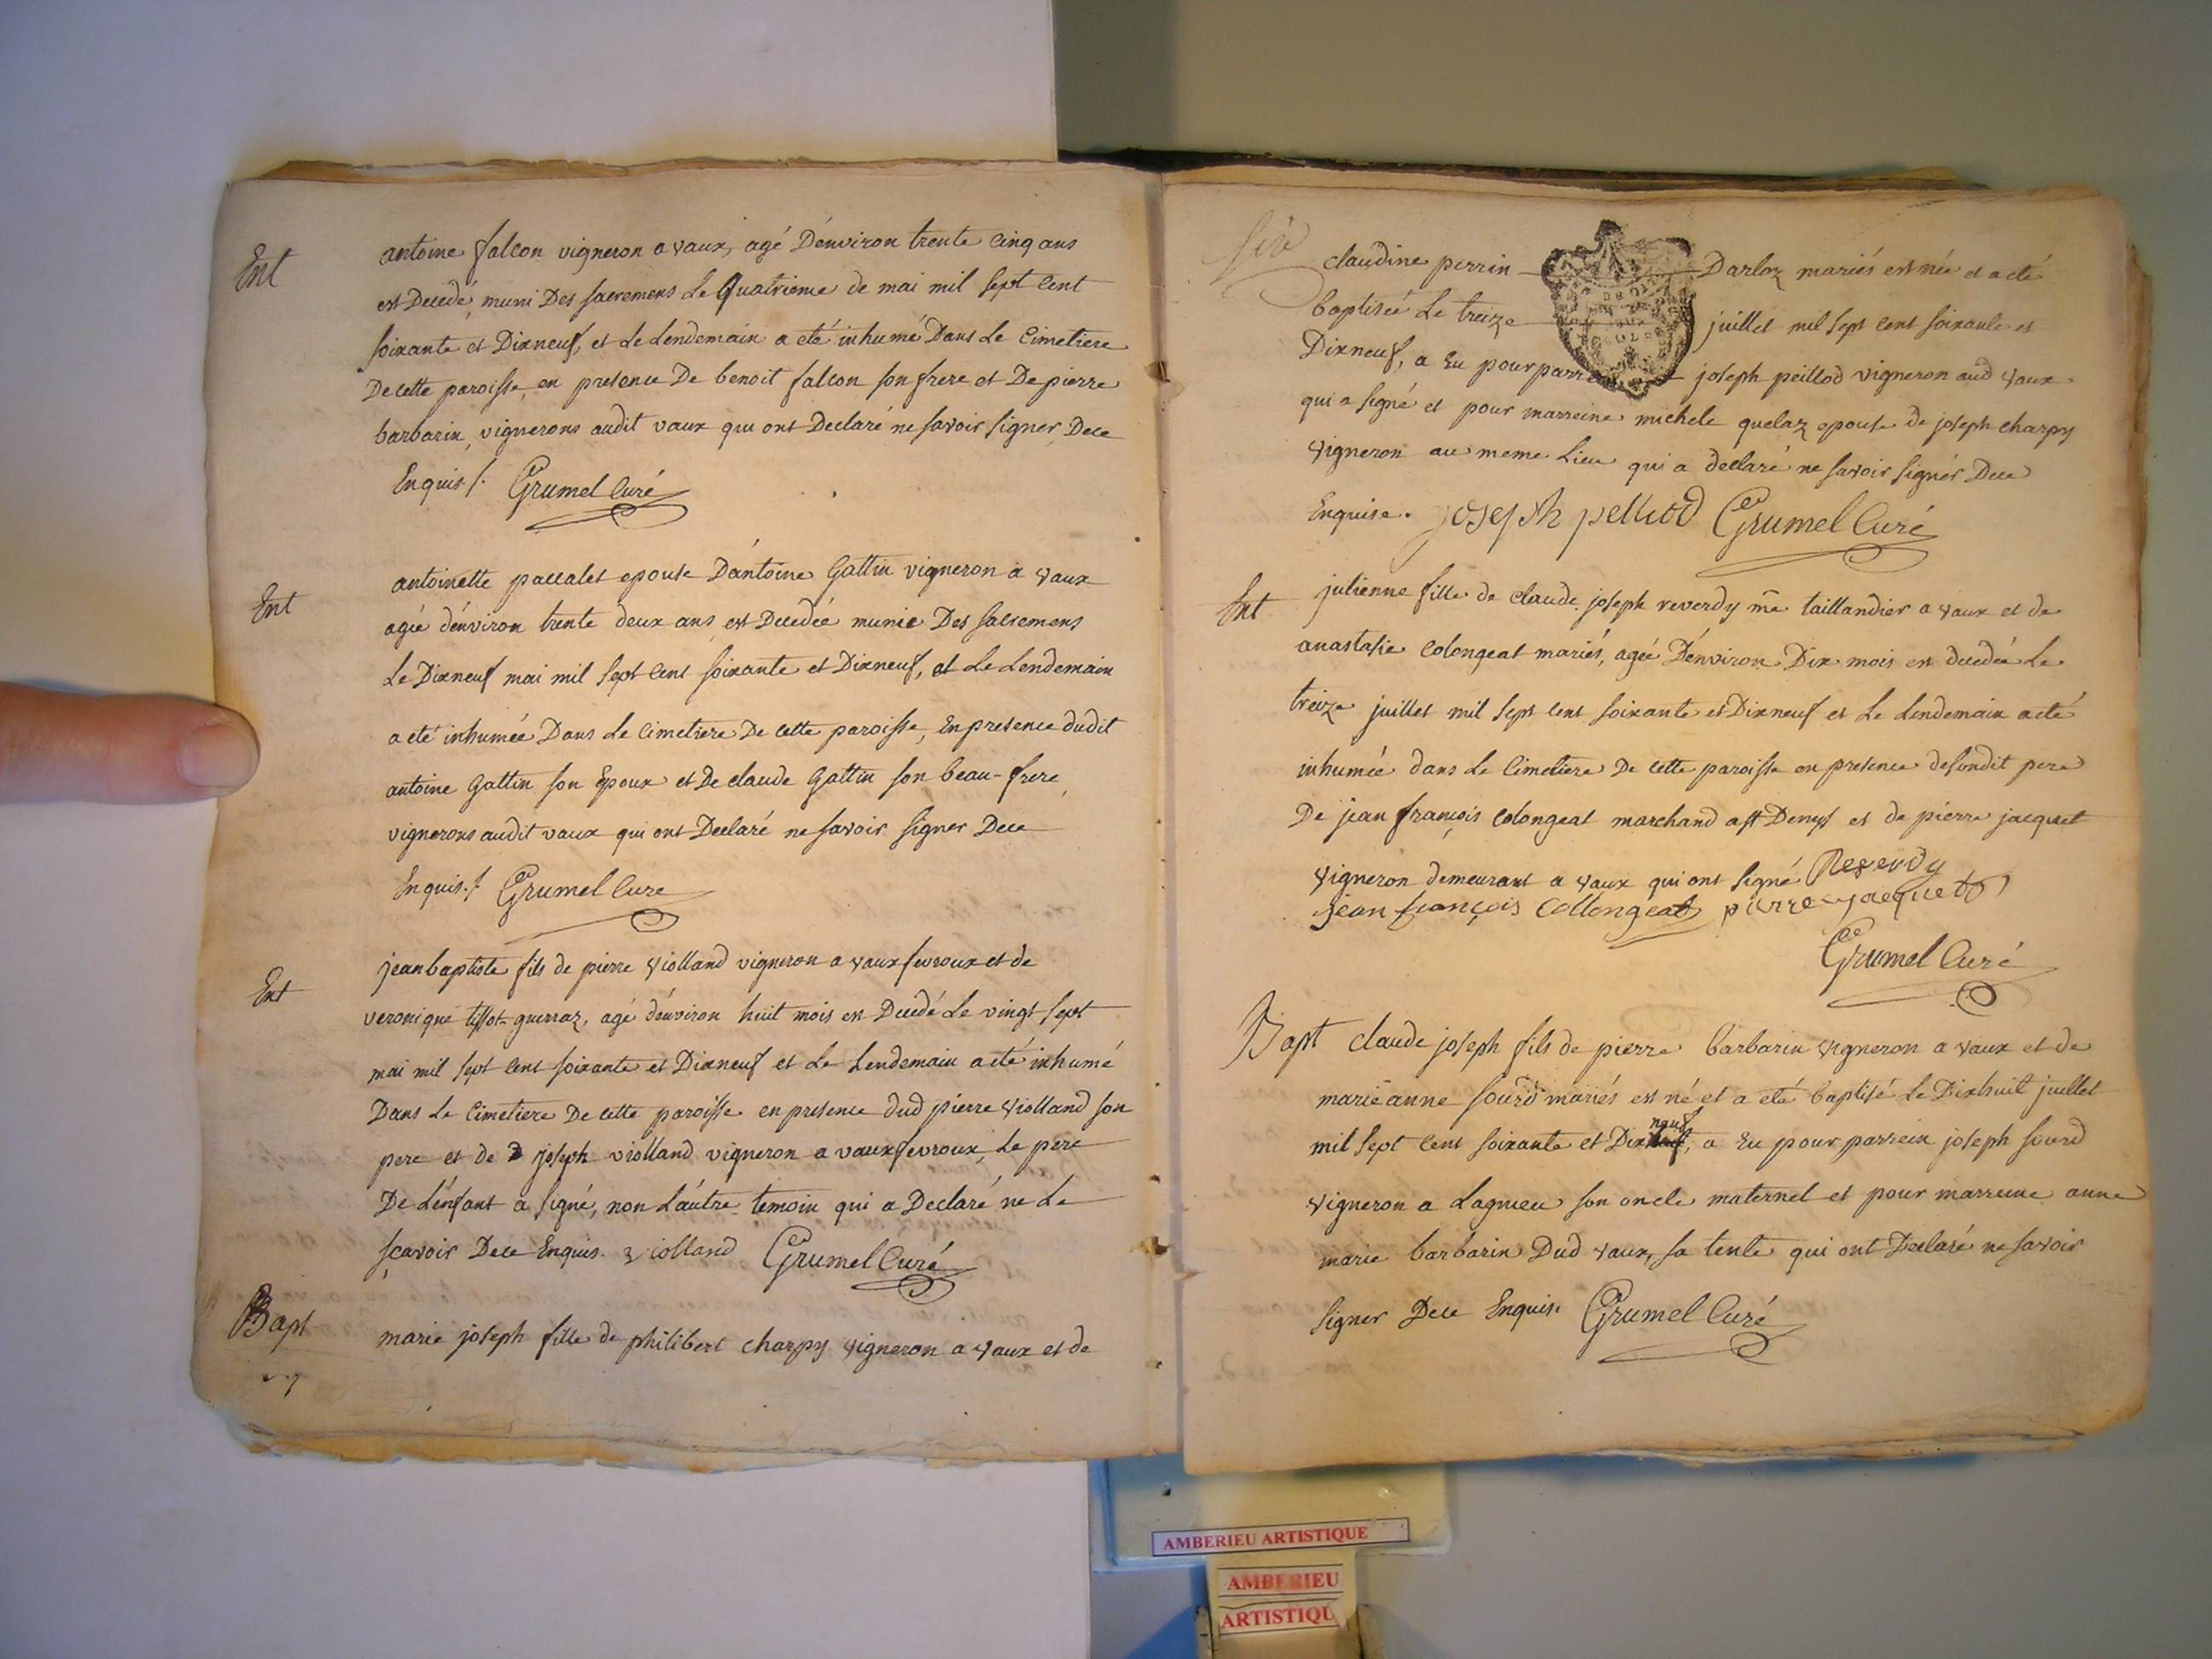 Ent
antoine falcon vigneron a vaux, agé D'environ trente cinq ans
est Decedé, muni Des sacremens Le Quatrieme de mai mil sept cent
soixante et Dixneuf, et Le Lendemain a eté inhumé Dans Le Cimetiere
De cette paroisse, en presence De benoit falcon son frere et De pierre
barbarin, vignerons audit vaux qui ont Declaré ne savoir signer, Dece
Enquis ./. Grumel Curé
Ent
antoinette paccalet epouse D'antoine Gattin vigneron a vaux
agée d'environ trente deux ans est Decedée munie Des sacremens
Le Dixneuf mai mil sept cent soixante et Dixneuf, et Le Lendemain
a eté inhumée Dans Le Cimetiere De cette paroisse, En presence dudit
antoine Gattin son Epoux et De claude Gattin son beau-frere,
vignerons audit vaux qui ont Declaré ne savoir signer Dece
Enquis ./. Grumel Cure
Ent
jean baptiste fils de pierre violland vigneron a vaux fevroux et de
veronique tissot-guerraz, agé d'environ huit mois est Decedé Le vingt sept
mai mil sept cent soixante et Dixneuf et Le Lendemain a eté inhumé
Dans Le Cimetiere De cette paroisse en presence dud pierre violland son
pere et de joseph violland vigneron a vaux fevroux, Le pere
De L'enfant a signé, non L'autre temoin qui a Declaré ne Le
scavoir Dece Enquis. violland Grumel Curé
Bapt
marie joseph fille de philibert charpy vigneron a vaux et de
claudine perrin Darlaz mariés est née et a eté
baptisée Le treize juillet mil sept cent soixante et
Dixneuf, a Eu pour parrein joseph peillod vigneron aud vaux
qui a signé et pour marreine michele quelaz epouse de joseph charpy
vigneron au meme Lieu qui a declaré ne savoir signer Dece
Enquise. joseph pelliod Grumel Curé
Ent
julienne fille de claude joseph reverdy me taillandier a vaux et de
anastasie Colongeat mariés, agée D'environ Dix mois est decedée Le
treize juillet mil sept cent soixante et Dixneuf et Le Lendemain a eté
inhumée dans Le Cimetiere De cette paroisse en presence desondit pere
De jean françois Colongeat marchand a st Denys et de pierre jacquet
vigneron demeurant a vaux qui ont signé Reverdy
jean françois Collongeat pierre jacquet
Grumel Curé
Bapt claude joseph fils de pierre barbarin vigneron a vaux et de
marie anne sourd mariés est né et a eté baptisé Le Dixhuit juillet
mil sept cent soixante et Dixneuf, a Eu pour parrein joseph sourd
vigneron a Lagnieu son oncle maternel et pour marreine anne
marie barbarin Dud vaux, sa tente qui ont Declaré ne savoir
signer Dece Enquis. Grumel Curé
AMBERIEU ARTISTIQUE
AMBERIEU
ARTISTIQU